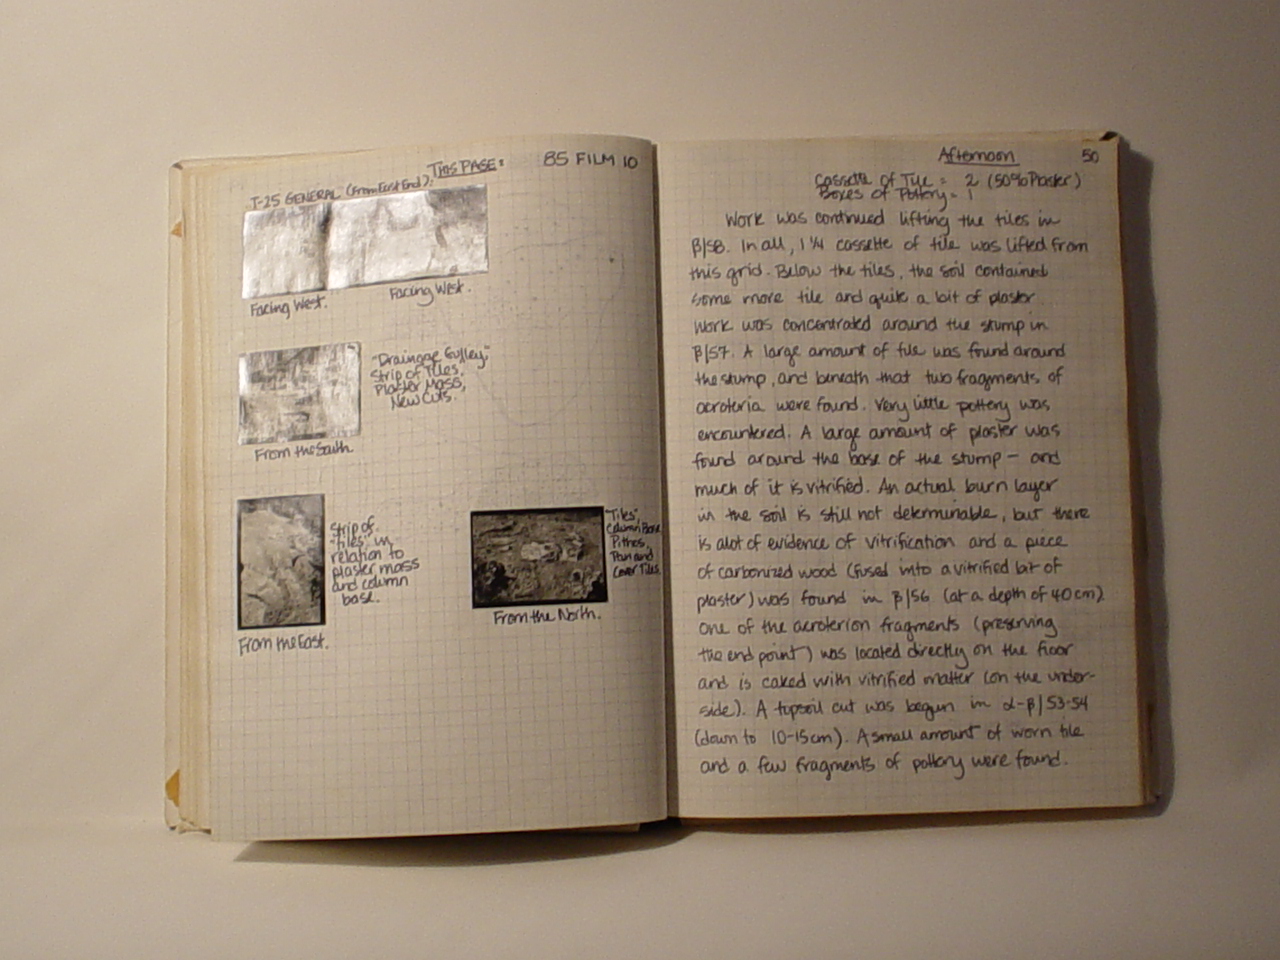 THIS PAGE: 85 FILM 10
T-25 GENERAL (From East End).
Facing West. Facing West.
"Drainage Gulley,"
Strip of Tiles,
Plaster Mass,
New Cuts.
From the South.
Strip of
"tiles" in
relation to
plaster mass
and column
base.
From the East.
"Tiles"
Column Base
Pithos,
Pan and
Cover Tiles.
From the North.
Afternoon 50
Cassette of Tile = 2 (50% Plaster)
Boxes of Pottery = 1
Work was continued lifting the tiles in
β/58. In all, 1 1/4 cassette of tile was lifted from
this grid. Below the tiles, the soil contained
some more tile and quite a bit of plaster
Work was concentrated around the stump in
β/57. A large amount of tile was found around
the stump, and beneath that two fragments of
acroteria were found. Very little pottery was
encountered. A large amount of plaster was
found around the base of the stump — and
much of it is vitrified. An actual burn layer
in the soil is still not determinable, but there
is alot of evidence of vitrification and a piece
of carbonized wood (fused into a vitrified bit of
plaster) was found in β/56 (at a depth of 40cm).
One of the acroterion fragments (preserving
the end point) was located directly on the floor
and is caked with vitrified matter (on the under-
side). A topsoil cut was begun in α-β/53-54
(down to 10-15cm). A small amount of worn tile
and a few fragments of pottery were found.